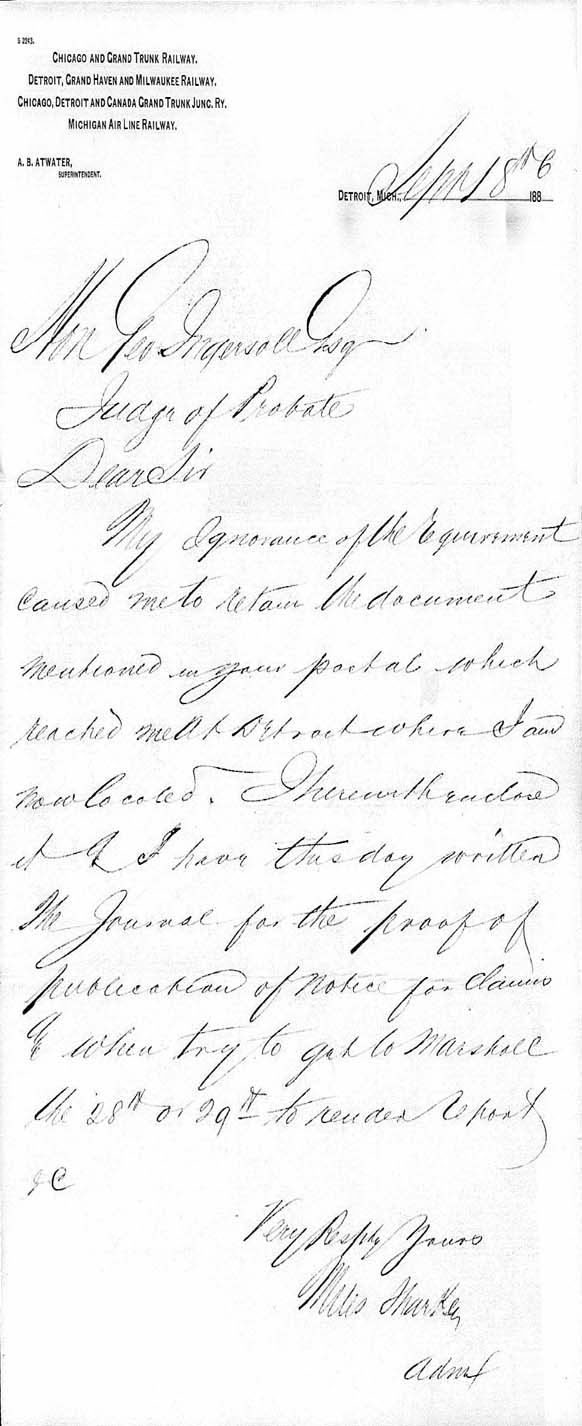 S 2243.
CHICAGO AND GRAND TRUNK RAILWAY.
DETROIT, GRAND HAVEN AND MILWAUKEE RAILWAY.
CHICAGO, DETROIT AND CANADA GRAND TRUNK JUNC. RY.
MICHIGAN AIR LINE RAILWAY.
A. B. ATWATER,
SUPERINTENDENT.
DETROIT, MICH., Sept 18th 1886
Hon Geo Ingersoll Esq
Judge of Probate
Dear Sir
My Ignorance of the requirement
caused me to retain the document
mentioned in your postal which
reached me at Detroit where I am
now located. I herewith enclose
it & I have this day written
the Journal for the proof of
publication of Notice for Claims
& when try to get to Marshall
the 28th or 29th to render report
&C
Very Respty Yours
Miles Sharkey
Admr